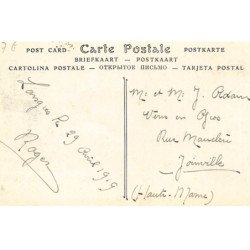 POST CARD Carte Postale POSTKARTE
BRIEFKAART — POSTKAART
CARTOLINA POSTALE — ОТКРЫТОЕ ПИСЬМО — TARJETA POSTAL
Langres le
29 Avril 1919
Roger
M. et Mme J. Adam
Vins en Gros
Rue
Joinville
(Haute-Marne)